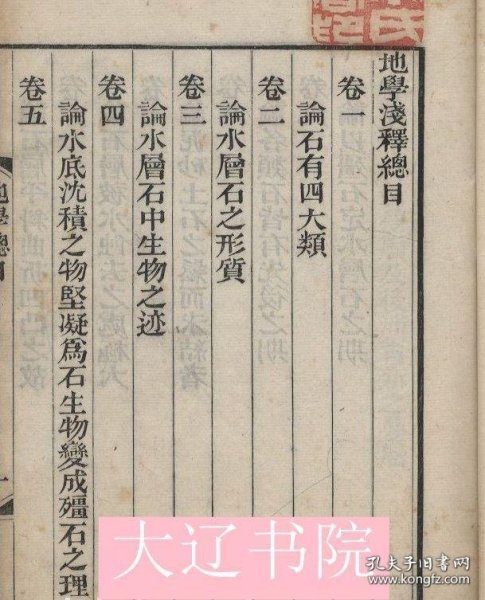 地學淺釋總目
卷一
論石有四大類
卷二
論水層石之形質
卷三
論水層石中生物之迹
卷四
論水底沈積之物堅凝爲石生物變成殭石之理
卷五
大辽书院
孔夫子旧书网
www.kongfz.com